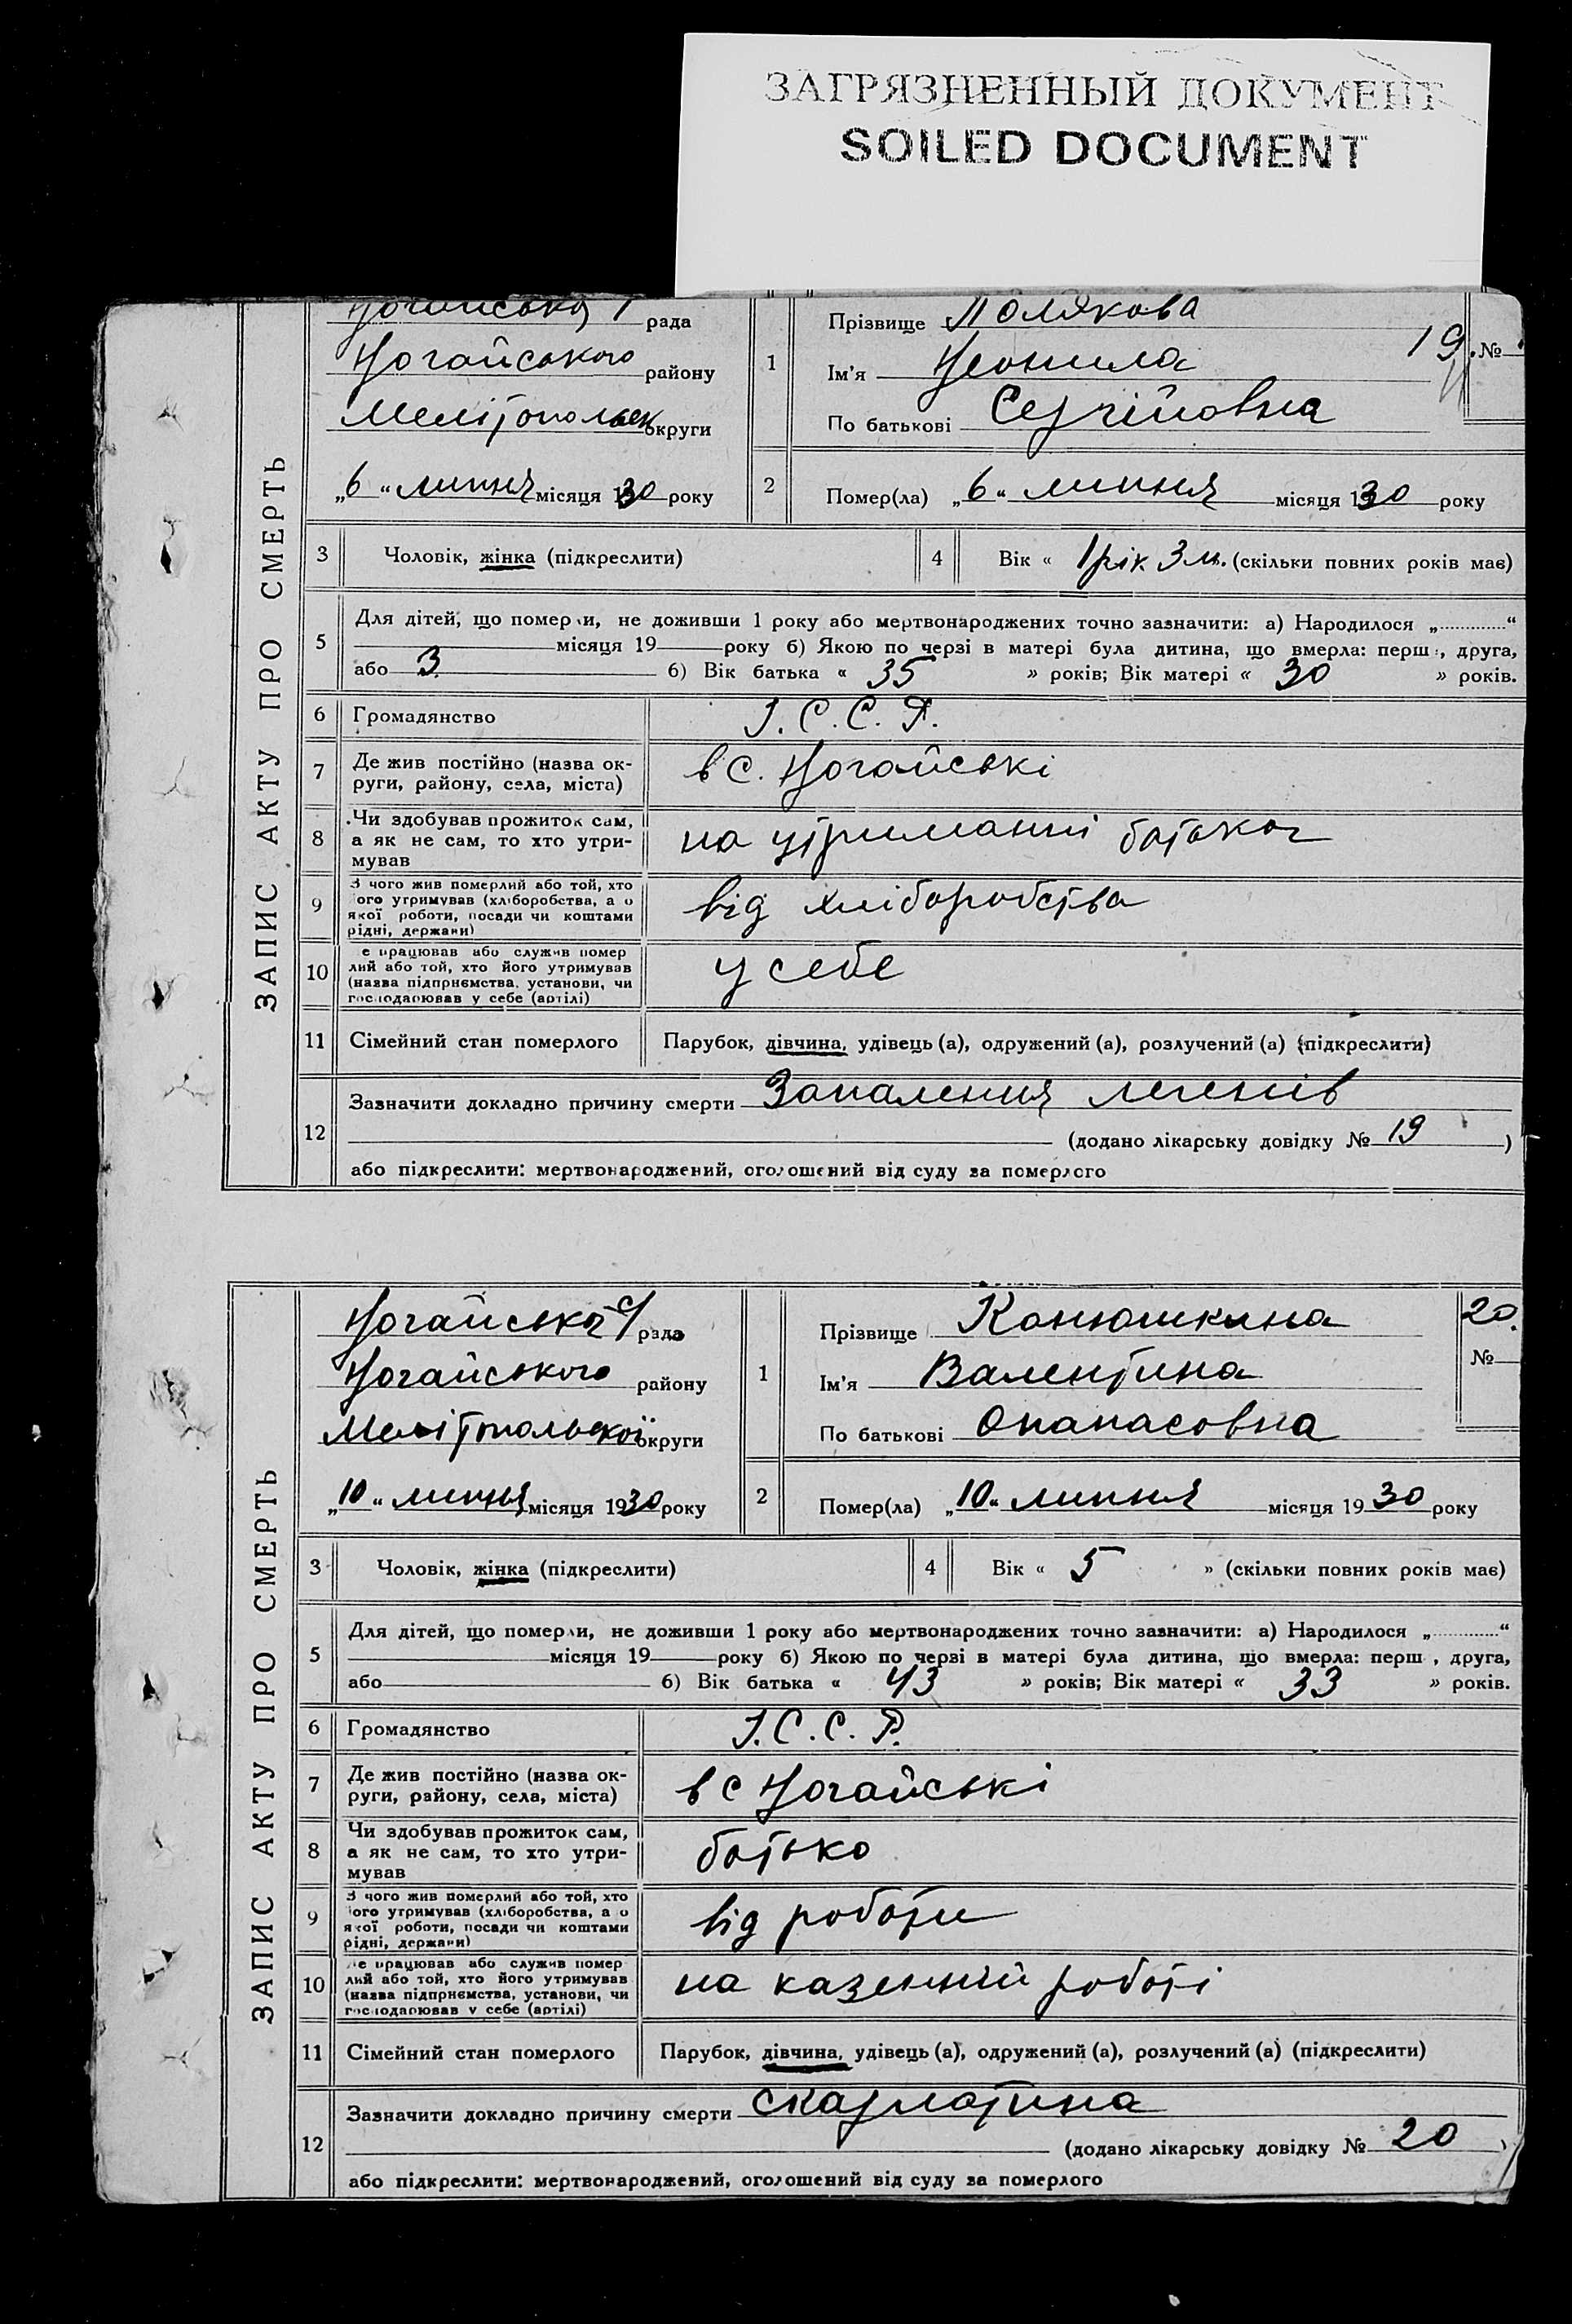 ЗАГРЯЗНЕННЫЙ ДОКУМЕНТ
SOILED DOCUMENT
ЗАПИС АКТУ ПРО СМЕРТЬ
Ногайська рада
Ногайського району
Мелітопольськ округи
„6“ липня місяця 1930 року
1
Прізвище Полякова
Ім’я Неонила
По батькові Сергійовна
19. №
2
Помер(ла) „6“ липня місяця 1930 року
3 Чоловік, жінка (підкреслити)
4 Вік « 1 рік 3 м. (скільки повних років має)
5
Для дітей, що померли, не доживши 1 року або мертвонароджених точно зазначити: а) Народилося „............“
місяця 19 року б) Якою по черзі в матері була дитина, що вмерла: перш , друга,
або 3 б) Вік батька « 35 » років; Вік матері « 30 » років.
6 Громадянство У.С.С.Р.
7 Де жив постійно (назва ок-
руги, району, села, міста)
в с. Ногайські
8 Чи здобував прожиток сам,
а як не сам, то хто утри-
мував
на утриманні батька
9 З чого жив померлий або той, хто
його утримував (хліборобства, а о
якої роботи, посади чи коштами
рідні, держави)
від хліборобства
10 е працював або служив помер
лий або той, хто його утримував
(назва підприємства, установи, чи
господарював у себе (артілі)
у себе
11 Сімейний стан померлого Парубок, дівчина, удівець (а), одружений (а), розлучений (а) (підкреслити)
12
Зазначити докладно причину смерти Запалення легенів
(додано лікарську довідку № 19 )
або підкреслити: мертвонароджений, оголошений від суду за померлого
ЗАПИС АКТУ ПРО СМЕРТЬ
Ногайська с/рада
Ногайського району
Мелітопольської округи
„10“ липня місяця 1930 року
1
Прізвище Канюшкина
Ім’я Валентина
По батькові Опанасовна
20.
№
2
Помер(ла) „10“ липня місяця 1930 року
3 Чоловік, жінка (підкреслити)
4 Вік « 5 » (скільки повних років має)
5
Для дітей, що померли, не доживши 1 року або мертвонароджених точно зазначити: а) Народилося „............“
місяця 19 року б) Якою по черзі в матері була дитина, що вмерла: перш , друга,
або б) Вік батька « 43 » років; Вік матері « 33 » років.
6 Громадянство У.С.С.Р.
7 Де жив постійно (назва ок-
руги, району, села, міста)
в с Ногайські
8 Чи здобував прожиток сам,
а як не сам, то хто утри-
мував
батько
9 З чого жив померлий або той, хто
його утримував (хліборобства, а о
якої роботи, посади чи коштами
рідні, держави)
від роботи
10 е працював або служив помер
лий або той, хто його утримував
(назва підприємства, установи, чи
господарював у себе (артілі)
на казенній роботі
11 Сімейний стан померлого Парубок, дівчина, удівець (а), одружений (а), розлучений (а) (підкреслити)
12
Зазначити докладно причину смерти скарлатина
(додано лікарську довідку № 20 )
або підкреслити: мертвонароджений, оголошений від суду за померлого